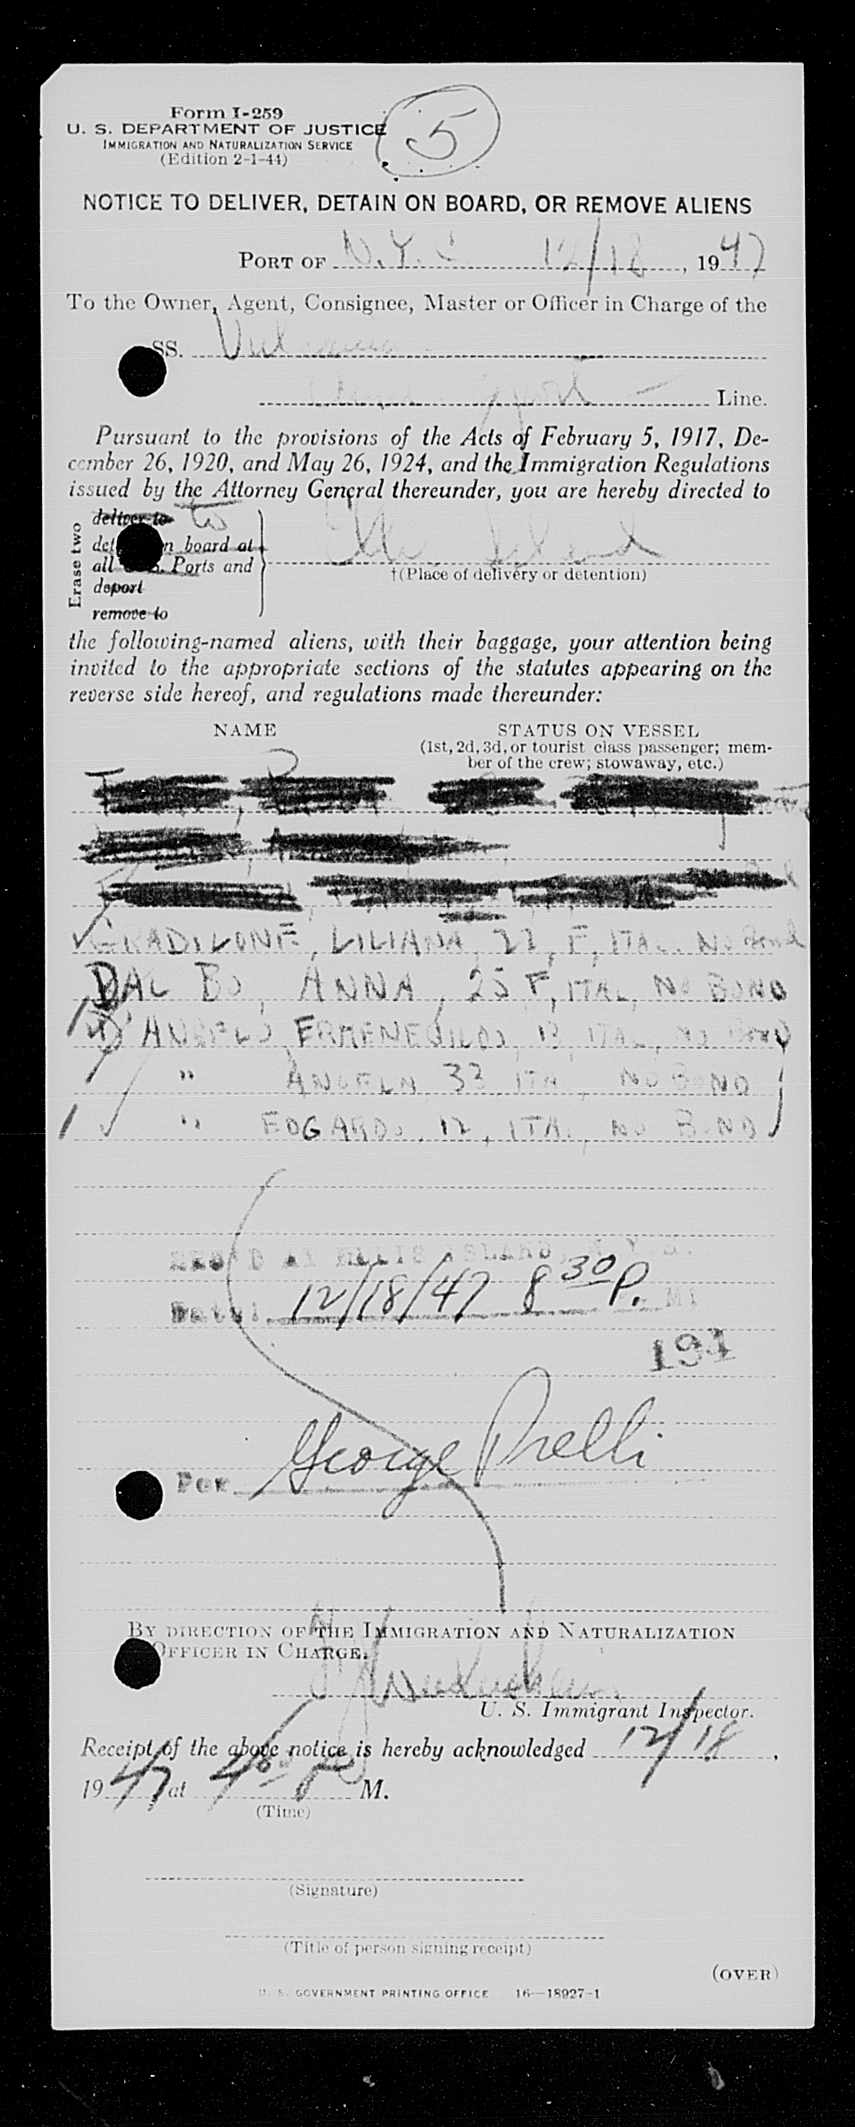 Form I-259
5
U. S. DEPARTMENT OF JUSTICE
IMMIGRATION AND NATURALIZATION SERVICE
(Edition 2-1-44)
NOTICE TO DELIVER, DETAIN ON BOARD, OR REMOVE ALIENS
PORT OF N.Y.C. 12/18, 1947
To the Owner, Agent, Consignee, Master or Officer in Charge of the
SS. Vulcania
Line.
Pursuant to the provisions of the Acts of February 5, 1917, De-
cember 26, 1920, and May 26, 1924, and the Immigration Regulations
issued by the Attorney General thereunder, you are hereby directed to
Erase two
deliver to to
board at
all Ports and
deport
remove to
Ellis Island
†(Place of delivery or detention)
the following-named aliens, with their baggage, your attention being
invited to the appropriate sections of the statutes appearing on the
reverse side hereof, and regulations made thereunder:
NAME STATUS ON VESSEL
(1st, 2d, 3d, or tourist class passenger; mem-
ber of the crew; stowaway, etc.)
GRADILONE, LILIANA, 22, F, ITAL. No Bond
DAL BO, ANNA, 25 F, ITAL, NO BOND
D'ANGELO ERMENEGILDO, 19, ITAL, NO BOND
" ANGELA 33 ITA, NO BOND
" EDGARDO, 12, ITA., NO BOND
REC'D AT ELLIS ISLAND, N.Y.H.
Date 12/18/47 8 30 P. M
194
Per George Prelli
BY DIRECTION OF THE IMMIGRATION AND NATURALIZATION
OFFICER IN CHARGE.
U. S. Immigrant Inspector.
Receipt of the above notice is hereby acknowledged 12/18,
1947 at 4 P M.
(Time)
(Signature)
(Title of person signing receipt)
(OVER)
U. S. GOVERNMENT PRINTING OFFICE 16—18927-1